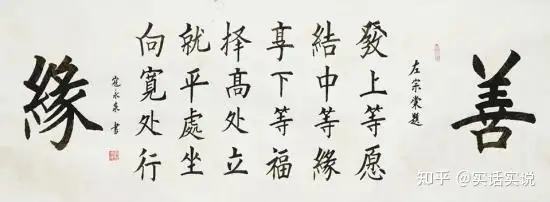 善
左宗棠題
發上等愿
結中等緣
享下等福
择高处立
就平處坐
向寬处行
寇永泉 書
緣
知乎 @实话实说